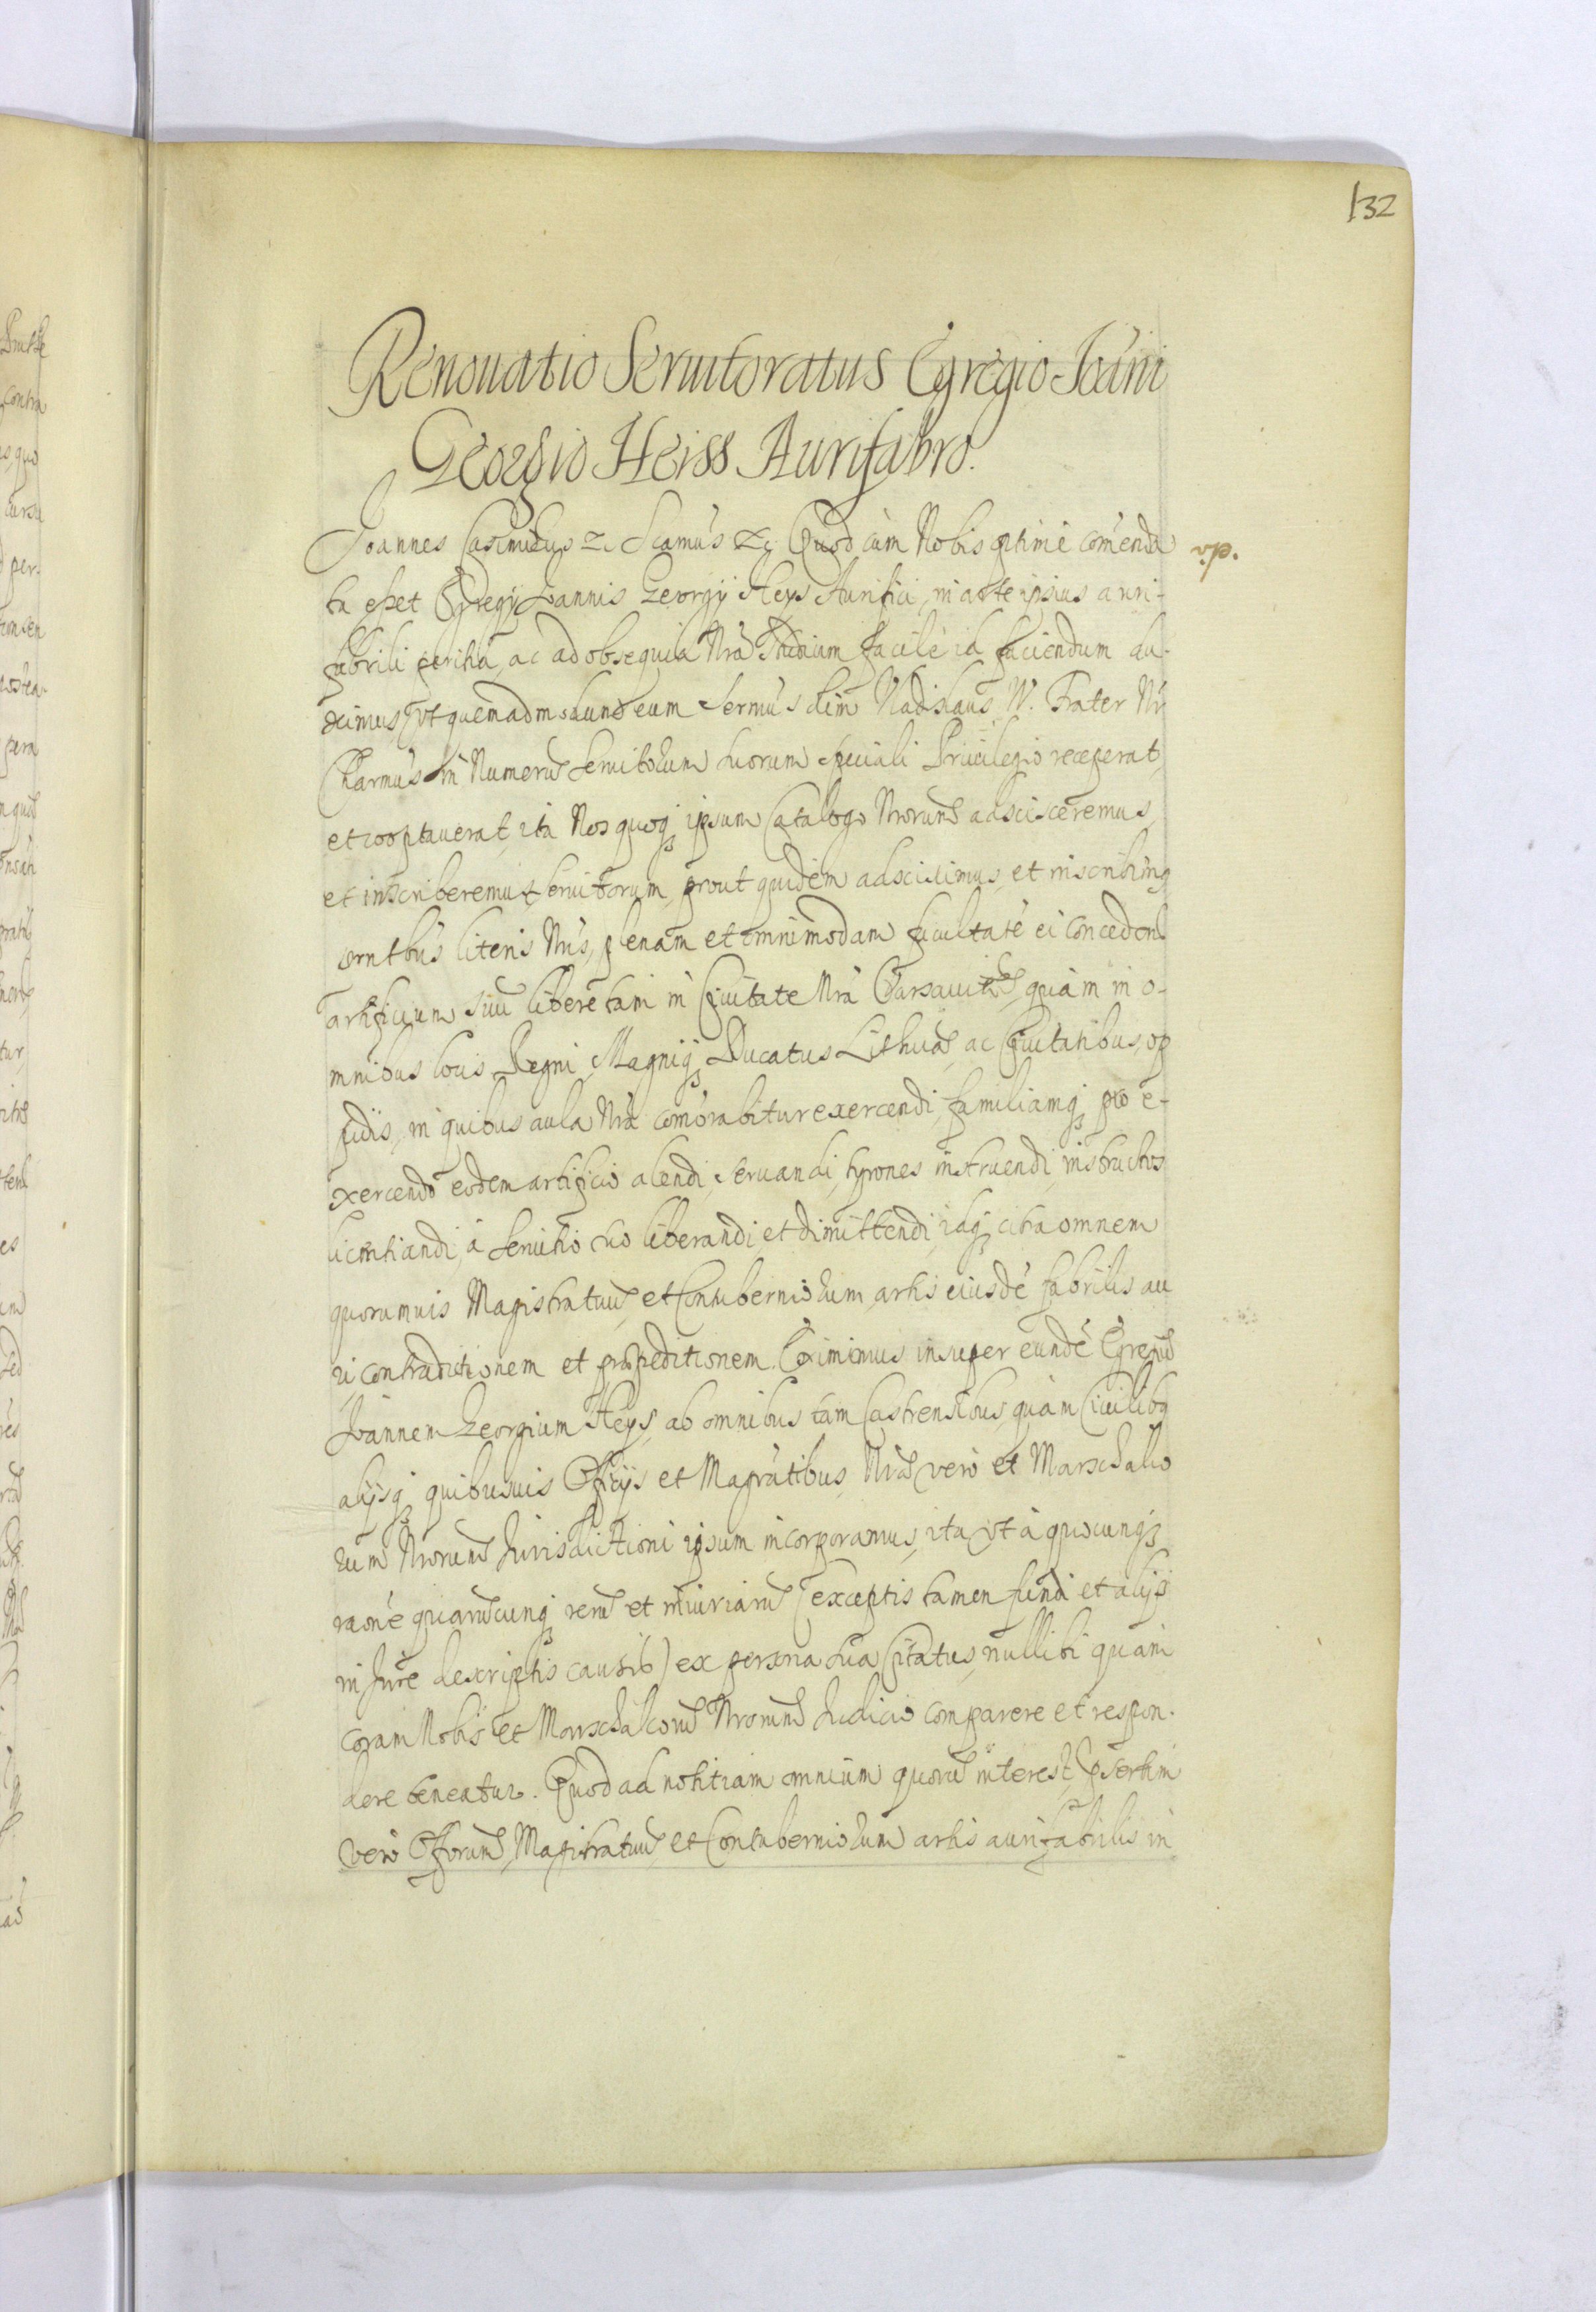 132
Renouatio Seruitoratus Egregio Joanni
Georgio Heiss Aurifabro.
Joannes Casimirus &c. Scamus &c. Quod cum Nobis optime comenda
v.p.
ta esset Egregij Joannis Georgij Heys Aurifici, in arte ipsius auri-
fabrili peritia, ac ad obsequia Nra Studium facile id faciendum du-
ximus, vt quemadmodum eum Sermus olim Vladislaus IV. Frater Nr
Charmus in Numerum Seruitorum suorum speciali Priuilegio receperat,
et cooptauerat, ita Nos quoq ipsum Catalogo Nrorum adscisceremus,
et inscriberemus seruitorum, prout quidem adsciscimus, et inscribimus
prntbus literis Nris, plenam et omnimodam facultate ei conceden
artificium suum libere tam in Ciuitate Nra Varsauien quam in o-
mnibus locis Regni, Magniq Ducatus Lithuae ac Ciuitatibus, op
pidis, in quibus aula Nra comorabitur exercendi, familiamq pro e-
xercendo eodem artificio alendi, seruandi, tyrones instruendi, instructos
licentiandi, a seruitio suo liberandi, et dimittendi, idq citra omnem
quorumuis Magistratuum, et Contuberniorum artis eiusde fabrilis au
ri contradictionem et praepeditionem. Eximimus insuper eunde Egregium
Joannem Georgium Heys, ab omnibus tam Castrensibus, quam Ciuilibq
alijsq quibusuis Officijs et Magratibus, Nrae vero et Marschalco
rum Nrorum Jurisdictioni ipsum incorporamus, ita vt a quocunq
raone quarumcunq rerum et iniuriarum (exceptis tamen fundi et alijs
in Jure descriptis causis) ex persona sua Citatus, nullibi quam
coram Nobis et Marschalcorum Nrorum Judicio comparere et respon-
dere teneatur. Quod ad notitiam omnium quorum interest, psertim
vero Offorum, Magistratuum, et Contuberniorum artis aurifabrilis in